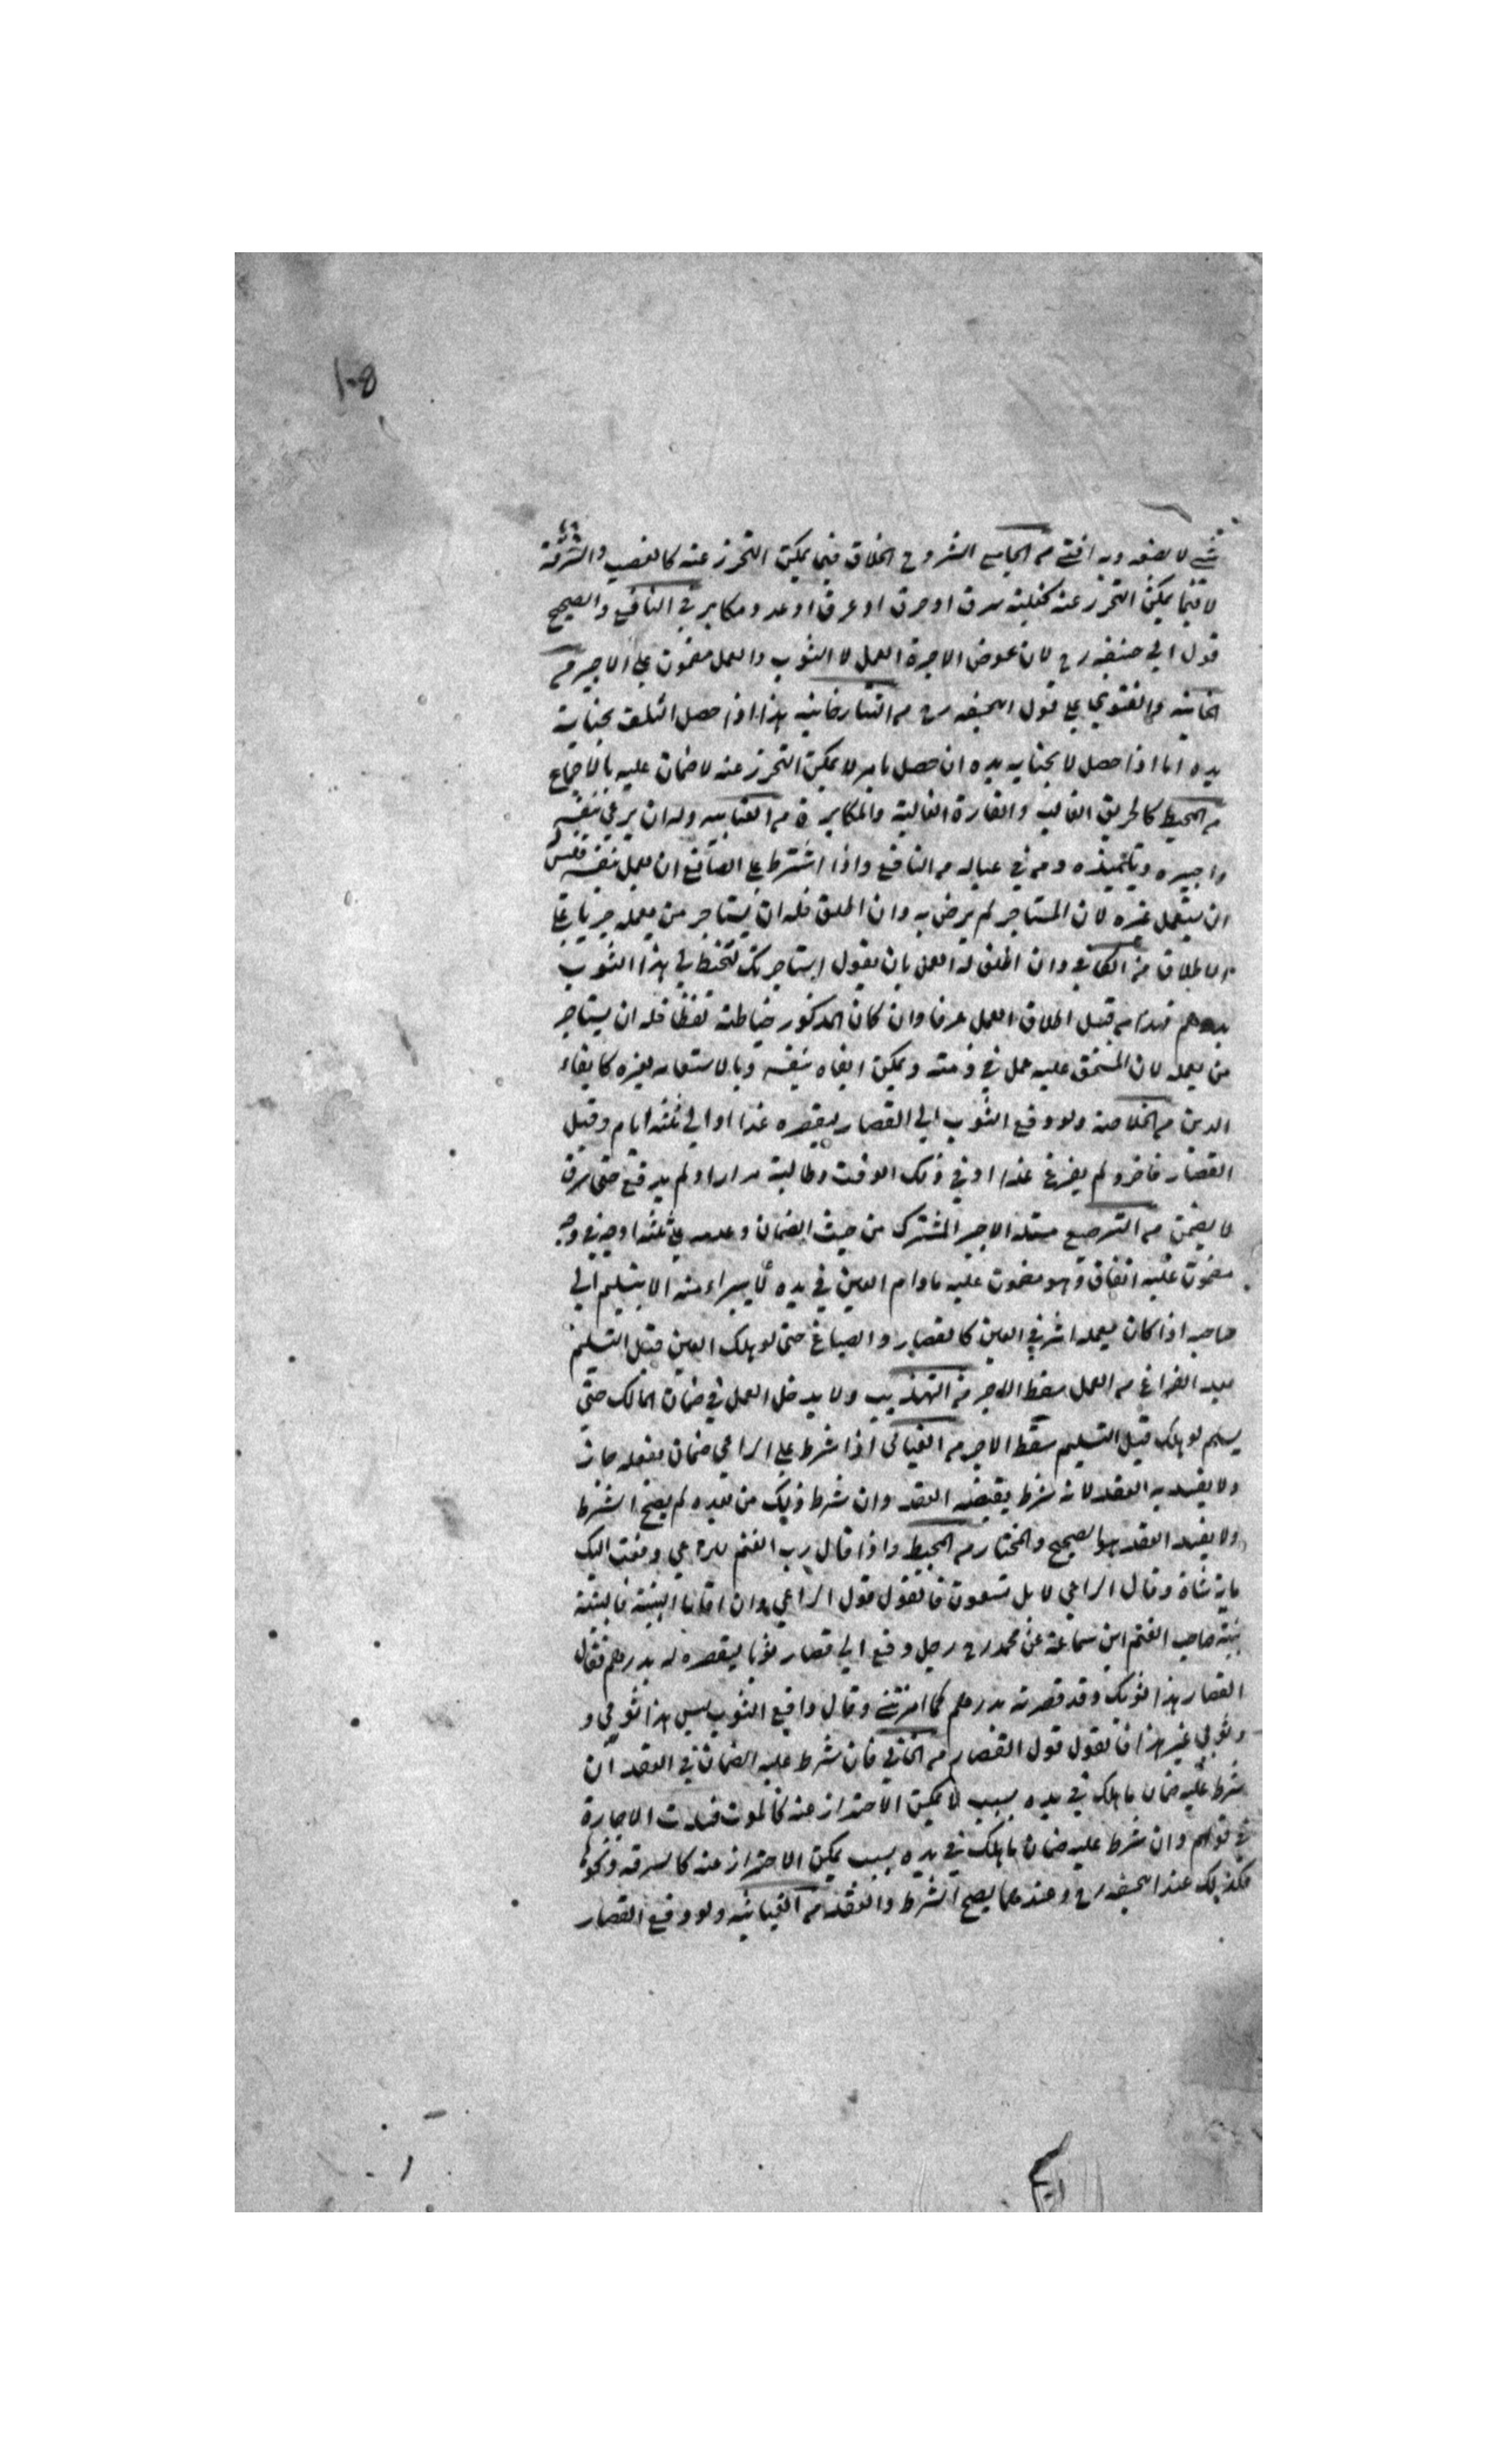 ١٠٥
شيء لا يضمنه وبه افتى من الجامع الشروح الخلاف فيما يمكن التحرز عنه كالغصب والسرقة
لا فيما يمكن التحرز عنه كغلبة سرق او حرق او غرق او عدو مكابر في النافع والصحيح
قول ابي حنيفه رح لان عوض الاجرة العمل لا الثوب والعمل مضمون على الاجير من
الخانيه والفتوى على قول ابحنيفه رح من التتارخانيه هذا اذا حصل التلف بجناية
يده اما اذا حصل لا بجنايه يده ان حصل بامر لا يمكن التحرز عنه لا ضمان عليه بالاجماع
من المحيط كالحريق الغالب والغارة الغالبة والمكابرة من العتابيه وله ان يرعى بنفسه
واجيره وتلميذه ومن في عياله من النافع واذا اشترط على الصانع ان يعمل بنفسه فليس له
ان يستعمل غيره لان المستاجر لم يرض به وان اطلق فله ان يستاجر من يعمله جريا على
الاطلاق من الكافي وان اطلق له العمل بان يقول استاجرتك لتخيط لي هذا الثوب
بدرهم فهذا من قبيل اطلاق العمل عرفا وان كان المذكور خياطته لفظا فله ان يستاجر
من يعمله لان المستحق عليه عمل في ذمته ويمكن ايفاه بنفسه وبالاستعانه بغيره كايفاء
الدين من الخلاصة ولو دفع الثوب الى القصار ليقصره غدا او الى ثلثة ايام وقبل
القصار فاخر ولم يفرغ غدا او في ذلك الوقت وطالبة مرارا ولم يدفع حتى سرق
لا يضمن من الترصيع مسئلة الاجير المشترك من حيث الضمان وعدمه على ثلثة اوجه في وجه
مضمون عليه اتفاقا وهو مضمون عليه مادام العين في يده لا يبراء منه الا بتسليم الى
صاحبه اذا كان لعمله اثر في العين كالقصار والصباغ حتى لو هلك العين قبل التسليم
بعد الفراغ من العمل سقط الاجر من التهذيب ولا يدخل العمل في ضمان المالك حتى
يسلم لو هلك قبل التسليم سقط الاجر من الغياثي اذا شرط على الراعي ضمان بفعله جاز
ولا يفسد به العقد لانه شرط يقتضيه العقد وان شرط ذلك من بعده لم يصح الشرط
ولا يفسد العقد هو الصحيح والمختار من المحيط واذا قال رب الغنم للراعي دفعت اليك
ماية شاة وقال الراعي لا بل تسعون فالقول قول الراعي وان اقاما البينة فالبينة
بينة صاحب الغنم ابن سماعة عن محمد رح رجل دفع الى قصار ثوبا ليقصره له بدرهم فقال
القصار هذا ثوبك وقد قصرته بدرهم كما امرتني وقال دافع الثوب ليس هذا ثوبي و
وثوبي غير هذا فالقول قول القصار من الخاني فان شرط عليه الضمان في العقد ان
شرط عليه ضمان ما هلك في يده بسبب لا يمكن الاحتراز عنه كالموت فسدت الاجارة
في قولهم وان شرط عليه ضمان ما هلك في يده بسبب يمكن الاحتراز عنه كالسرقه ونحوه
فكذلك عند ابحنيفه رح وعندهما يصح الشرط والعقد من الغياثيه ولو دفع القصار